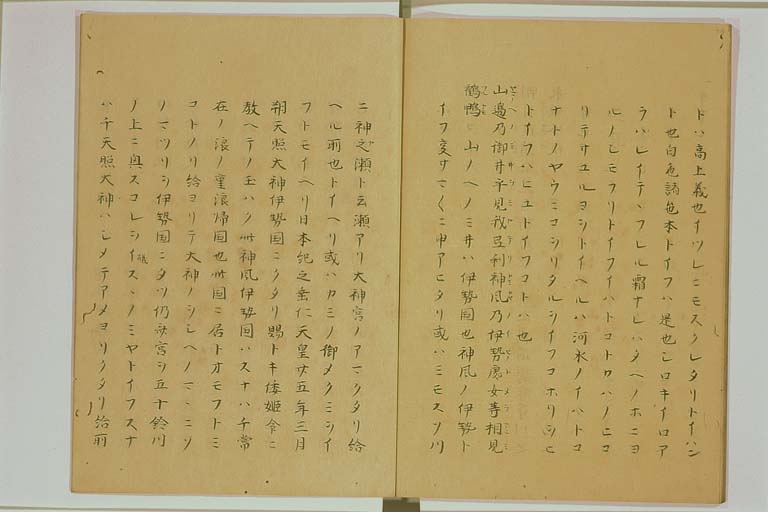 ドハ高上義也イツレニモスクレタリトイハン
ト也白色諸色本トイフハ是也シロキイロア
ラハレイテヽフレル霜ナレハタヘノホニヨ
ルノシモフリトイフイハトコトワハノヒコ
リテサユルヨシトイヘルハ河水ノイハトコ
ナトノヤウニコシリタルシイフコホリシヒ
トイフハヒユドイフコトハ也
山邊乃御井乎見我弖利神風乃伊勢處女等相見
鶴鴨 山ノヘノミ井ハ伊勢国也神風ノ伊勢ト
イフ変サマ〱ニ申アヒタリ或ハミモスソ川
ニ神之瀬ト云瀬アリ大神宮ノアマクタリ給
ヘル所也トイヘリ或ハカミノ御メクミシイ
フトモイヘリ日本紀之垂仁天皇廿五年三月
朔天照大神伊勢国ニクタリ賜トキ倭姫命ニ
教ヘテノ玉ハク此神風伊勢国ハスナハチ常
在ノ浪ノ重浪帰国也此国ニ居トオモフトミ
コトノリ給ヨリテ大神ノシヘノマヽニソ
ノマツリシ伊勢国ニタツ仍斎宮シ五十鈴川
ノ上ニ興スコレシイスヽノミヤトイフスナ
ハチ天照大神ハシメテアメヨリクタリ給所